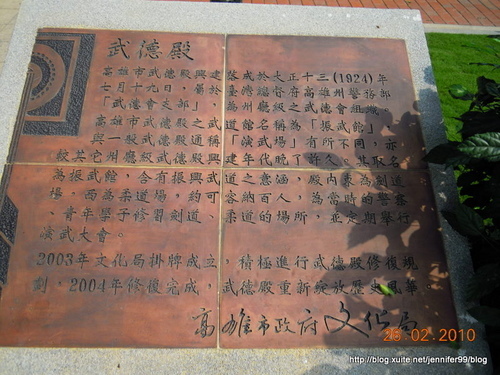 武德殿
高雄市武德殿興建落成於大正十三(1924)年
七月十九日，屬於臺灣總督府高雄州警務部
「武德會支部」，為州廳級之武德會組織。
高雄市武德殿之武道館名稱為「振武館」，
與一般武德殿通稱「演武場」有所不同，亦
較其它州廳級武德殿興建年代晚了許久。其取名
為振武館，含有振興武道之意涵，殿內東為劍道
場，西為柔道場，約可容納百人，為當時的警察
、青年學子修習劍道、柔道的場所，並定期舉行
演武大會。
2003年文化局掛牌成立，積極進行武德殿修復規
劃，2004年修復完成，武德殿重新綻放歷史風華。
高雄市政府文化局
26 02 2010
http://blog.xuite.net/jennifer99/blog